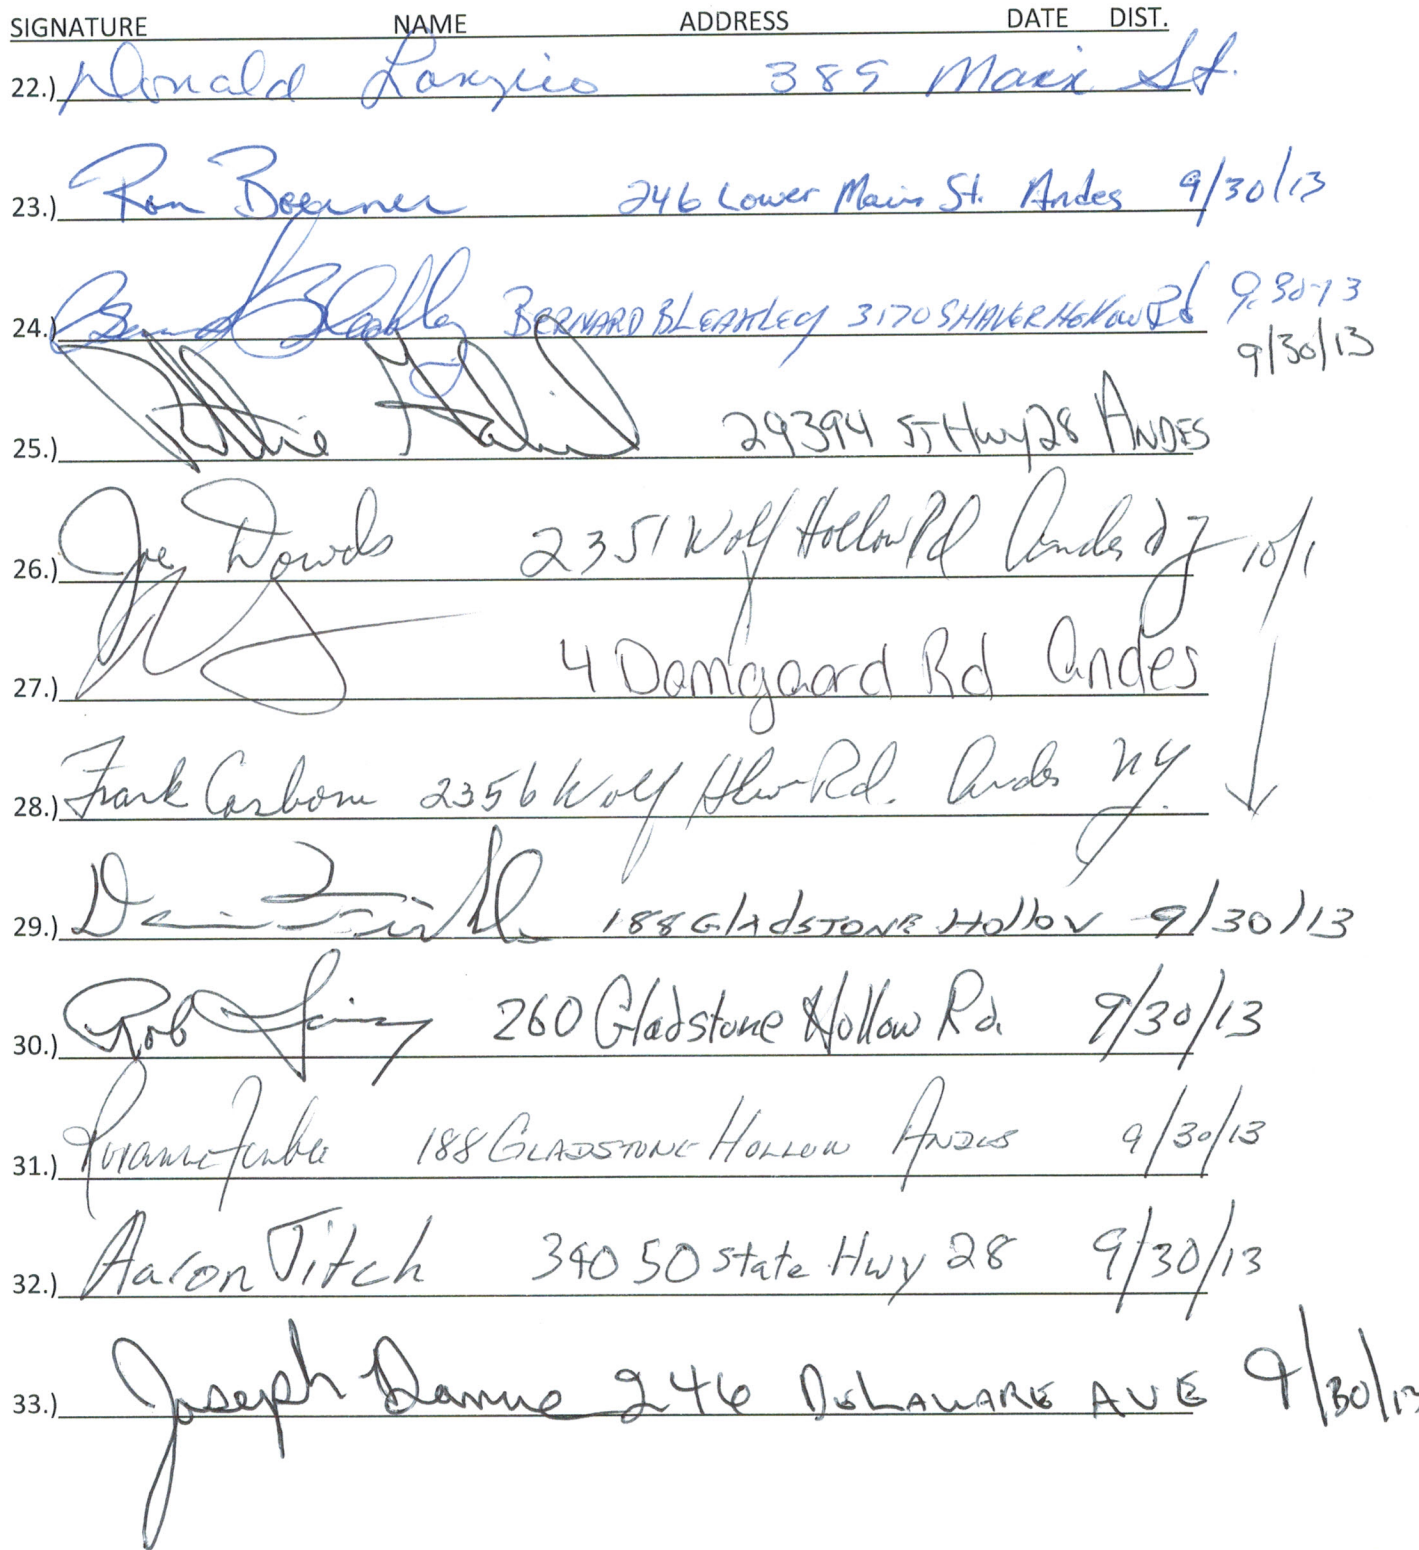 SIGNATURE NAME ADDRESS DATE DIST.
22.) Donald 389 Main St.
23.) Ron Boerner 246 Lower Main St. Andes 9/30/13
24.) BERNARD BLEAKLEY 3170 SHAVER HOLLOW Rd 9-30-13
9/30/13
25.) 29394 ST Hwy 28 ANDES
26.) Joe Dowds 2351 Wolf Hollow Rd Andes NY 10/1
27.) 4 Damgaard Rd Andes
28.) Frank Carbone 2356 Wolf Hlw Rd. Andes NY.
29.) 188 GlAdSTONE Hollow 9/30/13
30.) Rob 260 Gladstone Hollow Rd. 9/30/13
31.) 188 GLADSTONE HOLLOW ANDES 9/30/13
32.) Aaron Titch 34050 State Hwy 28 9/30/13
33.) Joseph 246 DELAWARE AVE 9/30/13